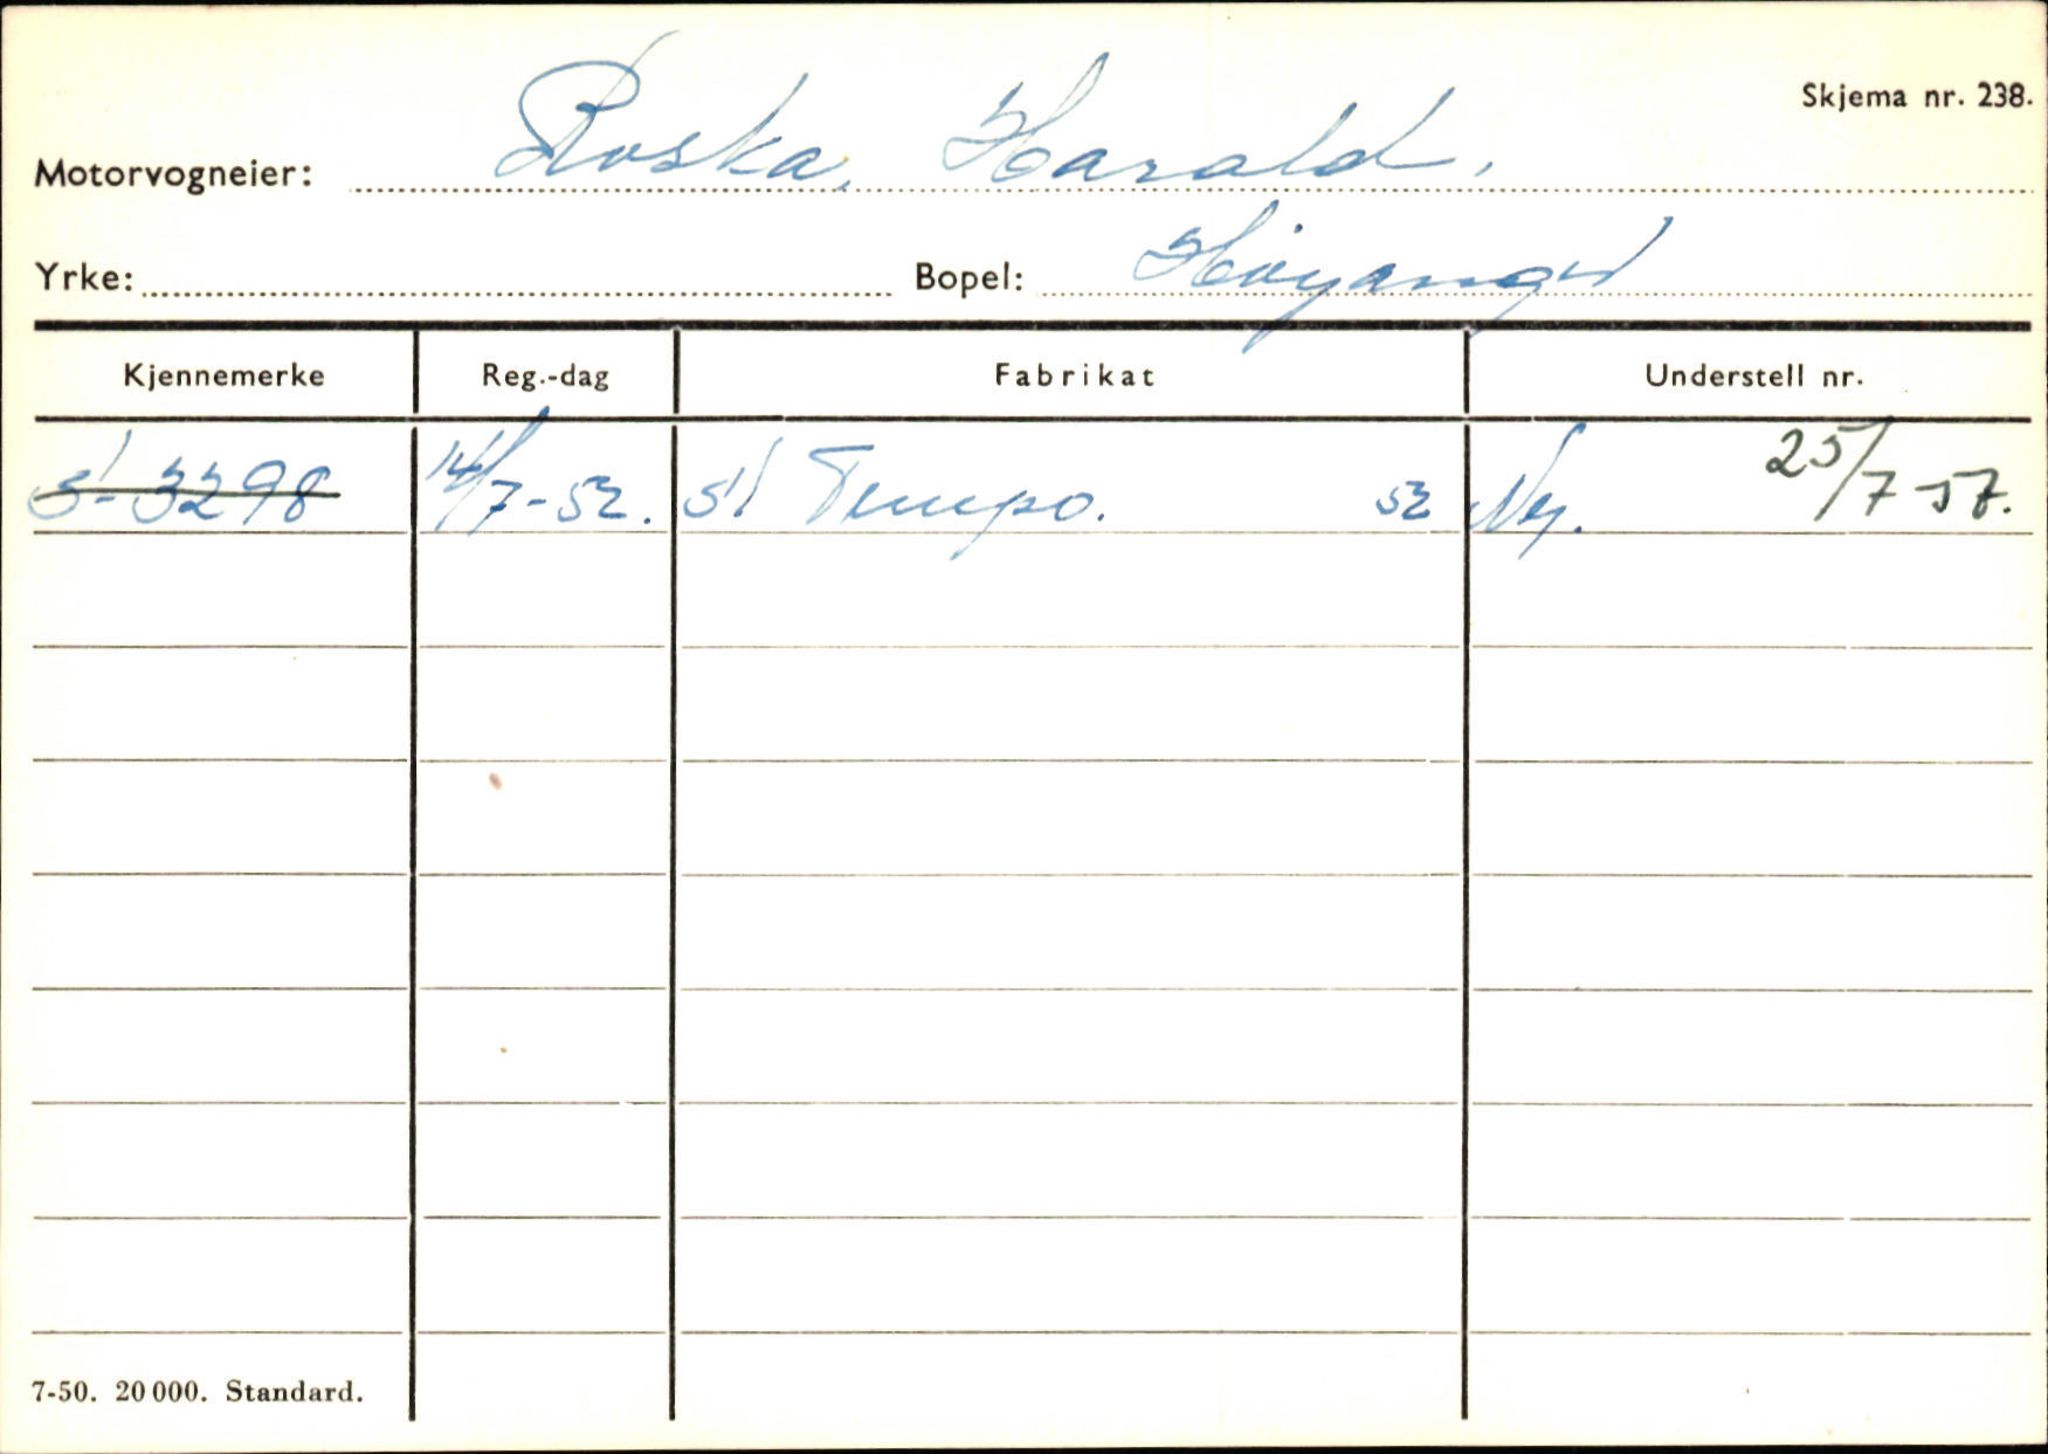 Skjema nr. 238.
Motorvogneier: Roska, Harald.
Yrke: Bopel: Höyanger
Kjennemerke Reg.-dag Fabrikat Understell nr.
S-3298 14/7-52. Tempo. 52 Ny. 25/7-57.
7-50. 20 000. Standard.